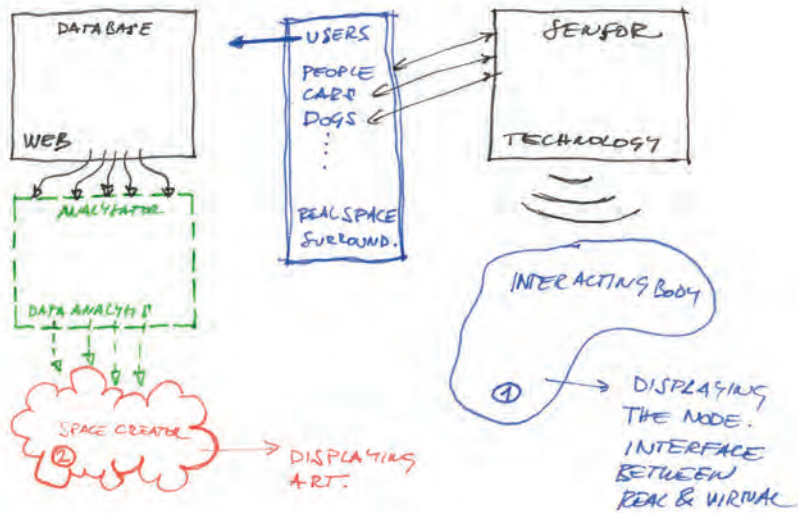 DATABASE
WEB
ANALYZATOR
DATA ANALYSIS
SPACE CREATOR
2
DISPLAYING
ART.
USERS
PEOPLE
CARS
DOGS
REAL SPACE
SURROUND.
SENSOR
TECHNOLOGY
INTERACTING BODY
1
DISPLAYING
THE NODE.
INTERFACE
BETWEEN
REAL & VIRTUAL